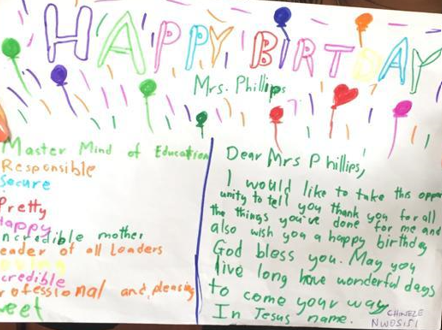 HAPPY BIRTDAY
Mrs. Phillips
Master Mind of Education
Responsible
Secure
Pretty
Happy
ncredible mother
eader of all Leaders
credible
rofessional and pleasing
weet
Dear Mrs Phillips,
I would like to take this oppor
unity to tell you thank you for all
the things you've done for me and
also wish you a happy birthday
God bless you. May you
live long have wonderful days
to come your way
In Jesus name.
CHINEZE
NWOSISI